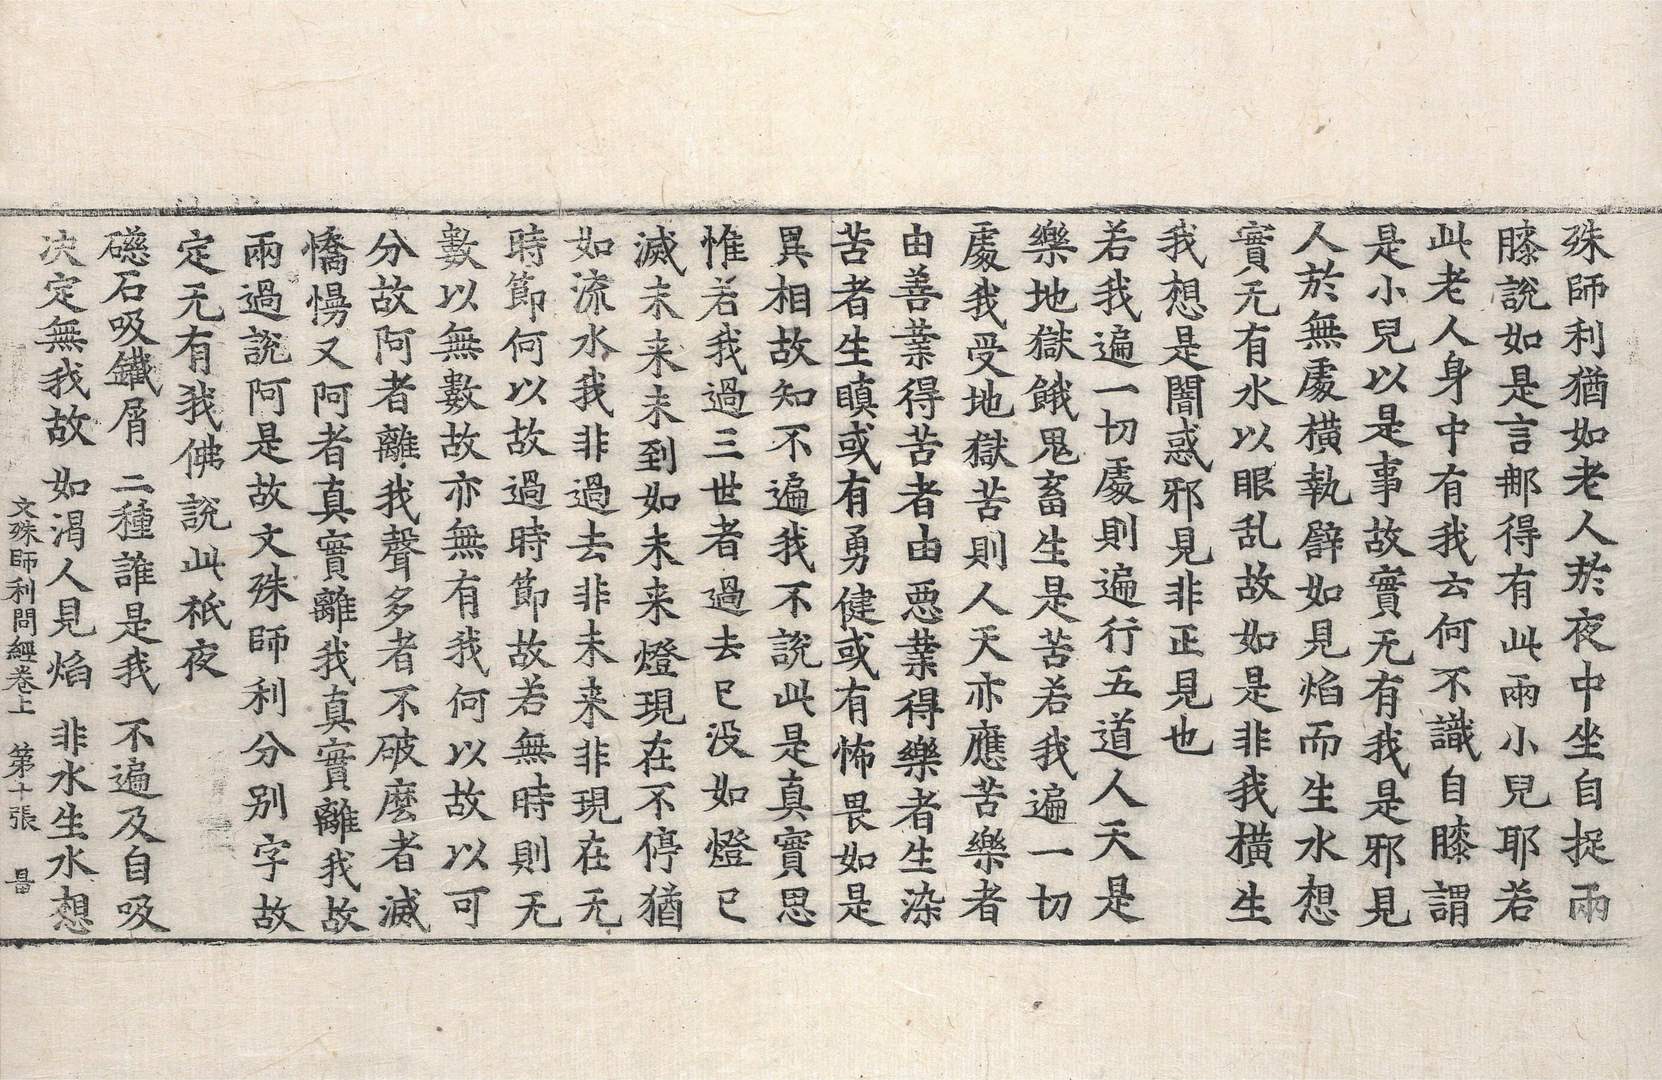 殊師利猶如老人於夜中坐自捉兩
膝說如是言那得有此兩小兒耶若
此老人身中有我云何不識自膝謂
是小兒以是事故實无有我是邪見
人於無處橫執譬如見焰而生水想
實无有水以眼乱故如是非我橫生
我想是闇惑邪見非正見也
若我遍一切處則遍行五道人天是
樂地獄餓鬼畜生是苦若我遍一切
處我受地獄苦則人天亦應苦樂者
由善業得苦者由惡業得樂者生染
苦者生瞋或有勇健或有怖畏如是
異相故知不遍我不說此是真實思
惟若我過三世者過去已没如燈已
滅未来未到如未来燈現在不停猶
如流水我非過去非未来非現在无
時節何以故過時節故若無時則无
數以無數故亦無有我何以故以可
分故阿者離我聲多者不破麼者滅
憍慢又阿者真實離我真實離我故
兩過說阿是故文殊師利分别字故
定无有我佛說此祇夜
礠石吸鐵屑 二種誰是我 不遍及自吸
决定無我故 如渴人見焰 非水生水想
文殊師利問經卷上 第十張 㫷